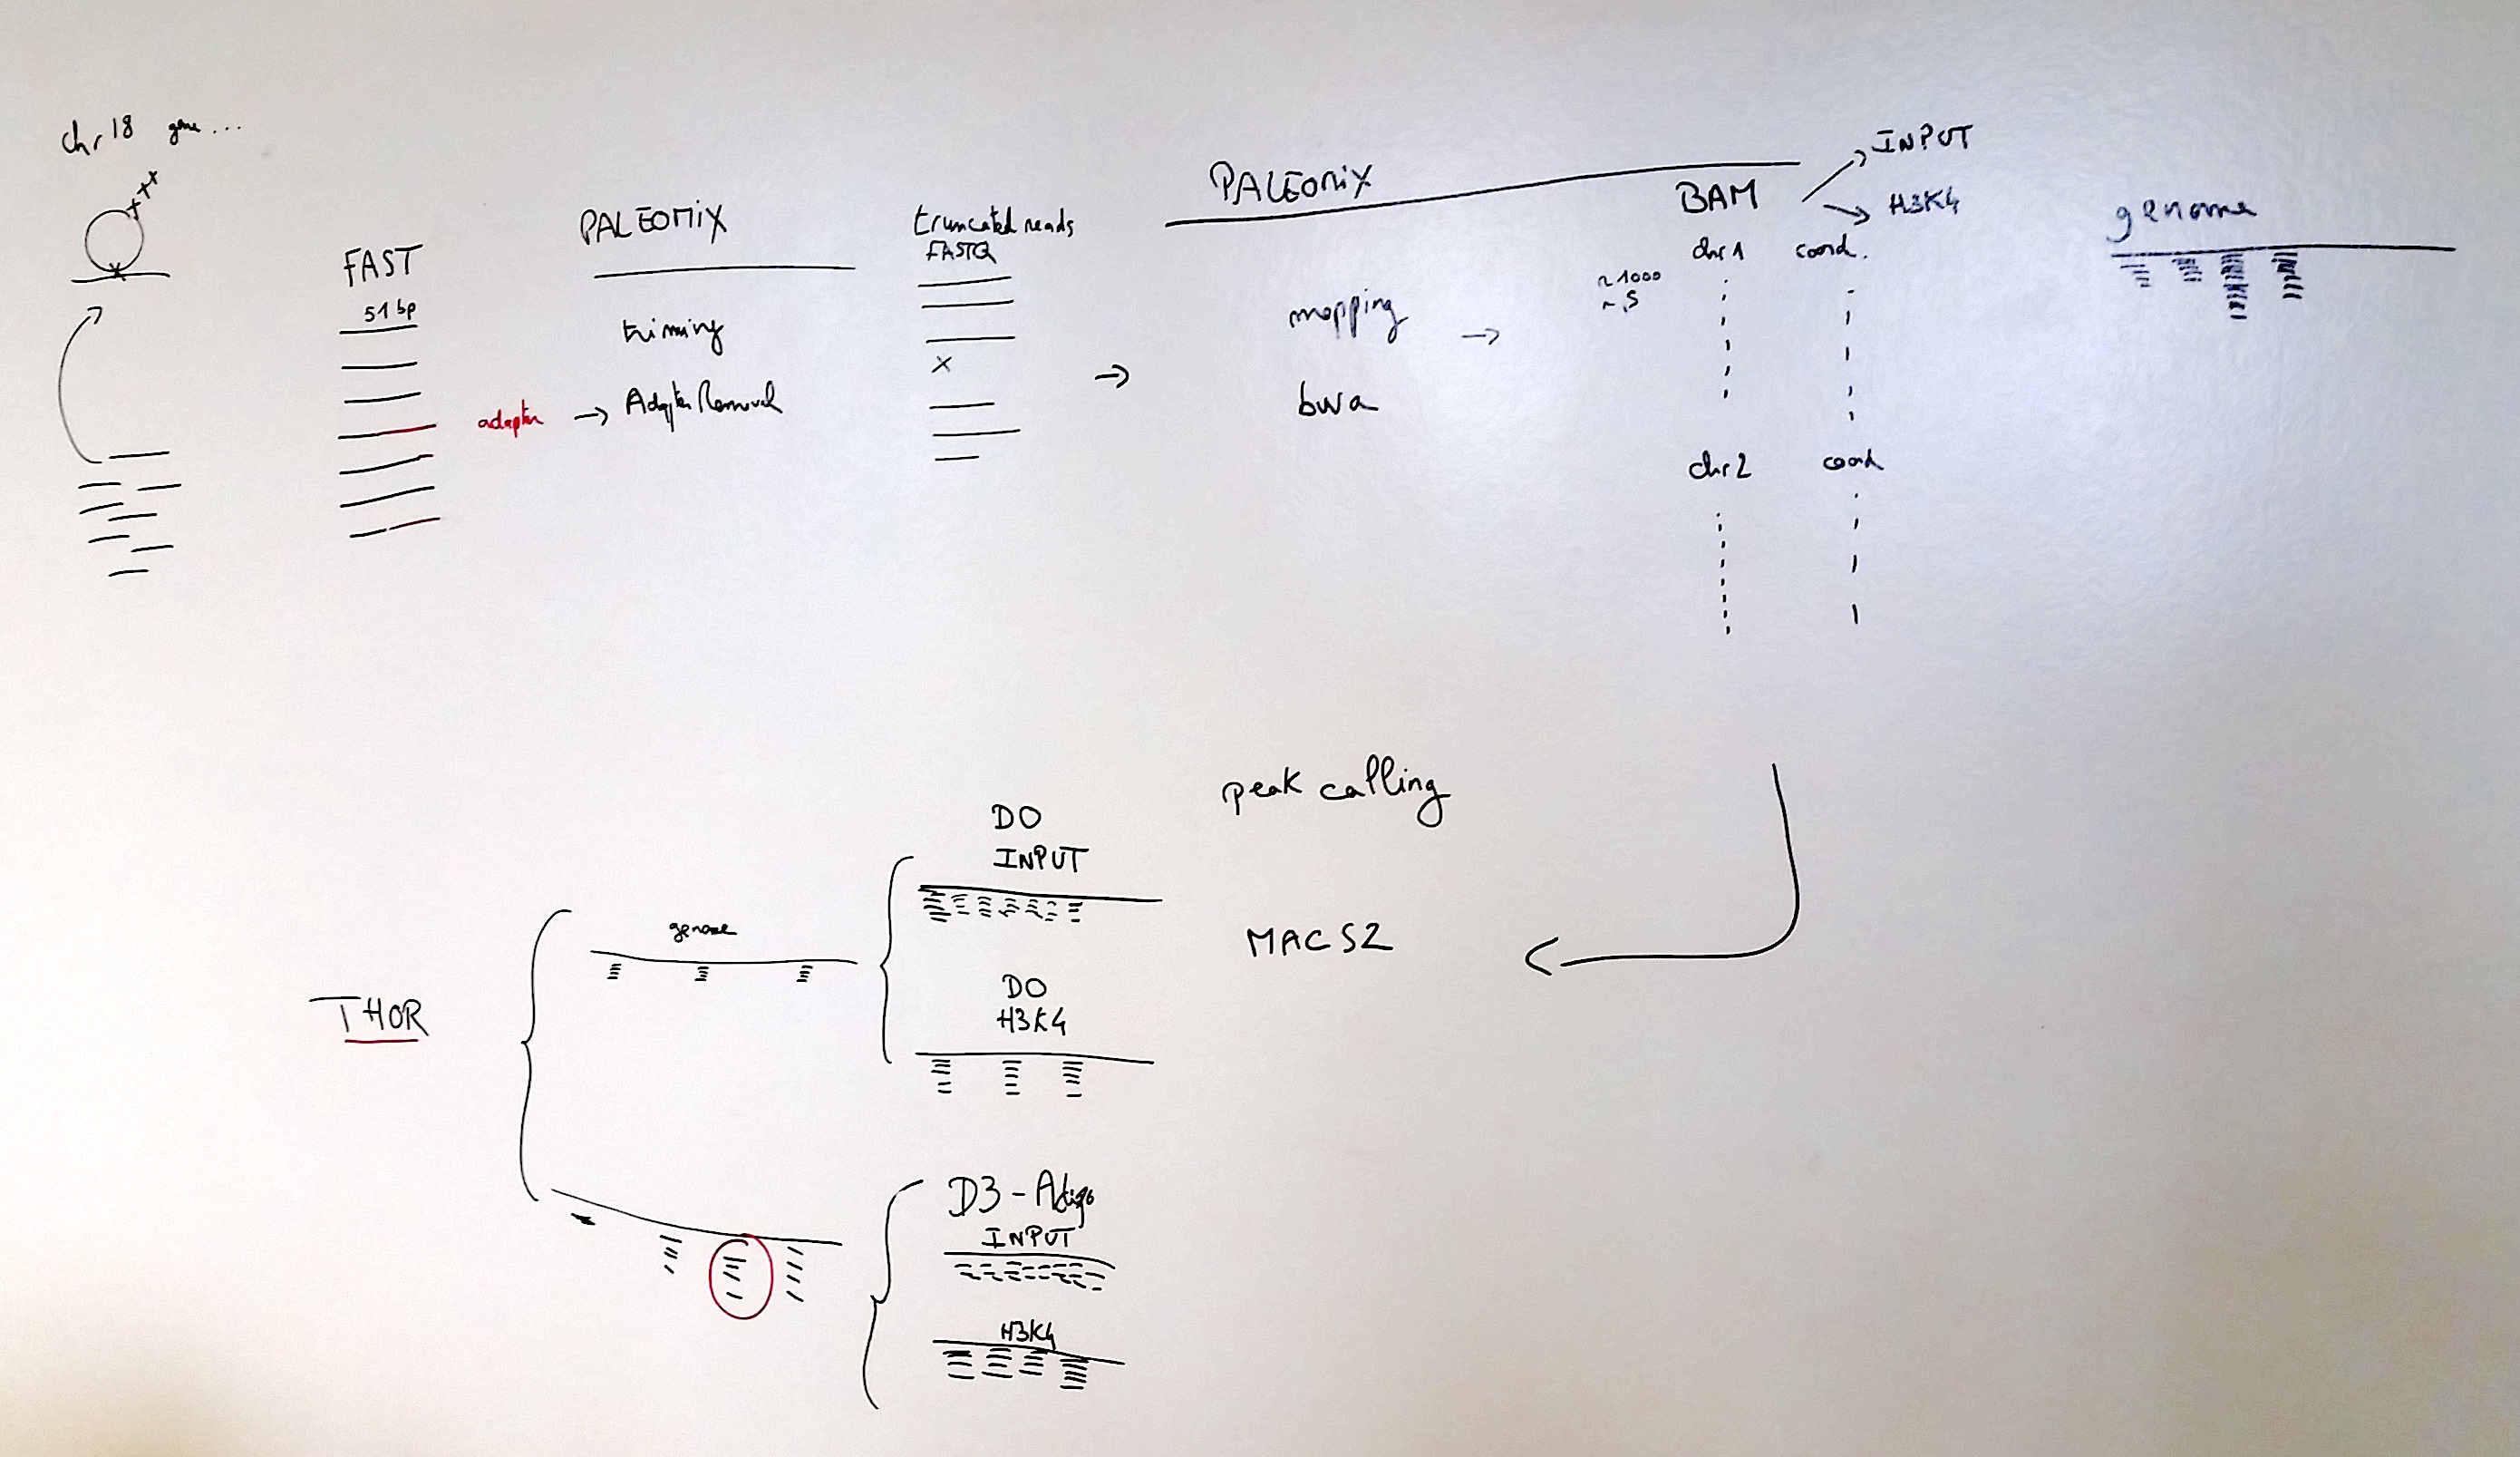 chr 18 gene ...
FAST
51 bp
adapter
PALEOMIX
triming
AdapterRemoval
truncated reads
FASTQ
x
PALEOMIX
mapping
bwa
BAM
INPUT
H3K4
chr 1 coord.
~1000
chr 2 coord
genome
peak calling
MACS2
D0
INPUT
D0
H3K4
genome
THOR
INPUT
H3K4